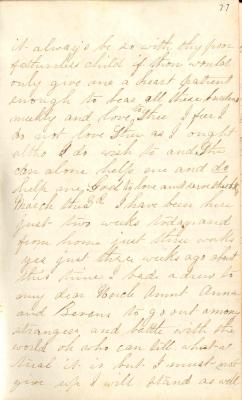 77
it always be so with thy poor
fatherless child if thou would
only give me a heart patient
enough to bear all these burdens
meekly and love thee I fear I
do not love Thee as I ought
altho I do wish to and Thee
can alone help me and do
help me God to love and serve thee
March the 3rd I have been here
just two weeks today and
from home just three weeks
yes just three weeks ago about
this time I bade adieu to
my dear Uncle Aunt Anna
and Bevans to go out among
strangers and battle with the
world oh who can tell what a
trial it is but I must not
give up I will stand as well